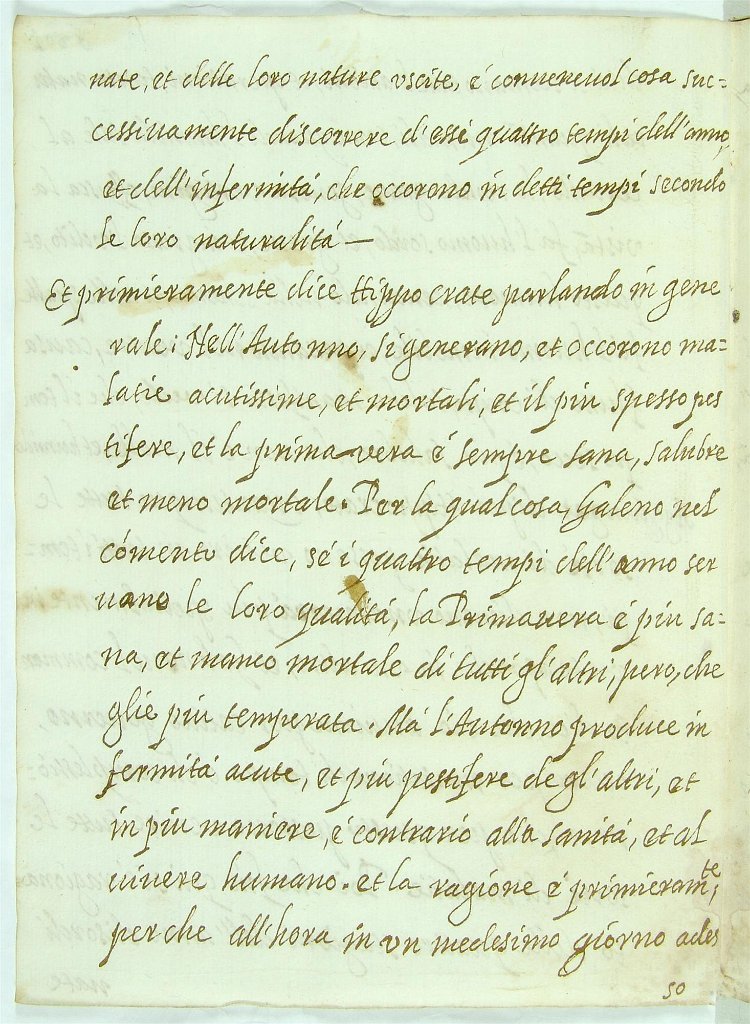 nate, et delle loro nature vscite, é conueneuol cosa suc=
cessiuamente discorrere d'essi quattro tempi dell'anno,
et dell'infermitá, che occorono in detti tempi secondo
le loro naturalitá —
Et primieramente dice Hippocrate parlando in gene
rale: Nell'Autonno, si generano, et occorono ma=
latie acutissime, et mortali, et il piu spesso pes
tifere, et la prima vera é sempre sana, salubre
et meno mortale. Per la qual cosa, Galeno nel
cómento dice, sé i quattro tempi dell'anno ser
uano le loro qualitá, la Primauera é piu sa=
na, et manco mortale di tutti gl'altri, pero, che
glie piu temperata. Má l'Autonno produce in
fermitá acute, et piu pestifere degl'altri, et
in piu maniere, é contrario alla sanitá, et al
viuere humano. et la ragione é primieramte,
perche all'hora in vn medesimo giorno ades
50